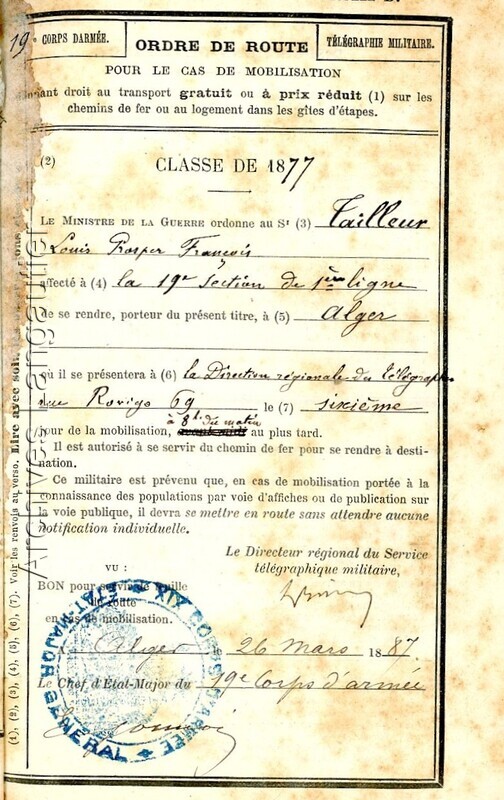 19e CORPS D'ARMÉE.
ORDRE DE ROUTE
TÉLÉGRAPHIE MILITAIRE.
POUR LE CAS DE MOBILISATION
Donnant droit au transport gratuit ou à prix réduit (1) sur les
chemins de fer ou au logement dans les gîtes d'étapes.
(2)
CLASSE DE 1877
LE MINISTRE DE LA GUERRE ordonne au Sr (3) Tailleur
Louis Prosper François
affecté à (4) la 19e Section de 1ère ligne
de se rendre, porteur du présent titre, à (5) Alger
où il se présentera à (6) la Direction régionale du télégraphe
rue Rovigo 69 le (7) sixième
à 8h. du matin
jour de la mobilisation, avant midi au plus tard.
Il est autorisé à se servir du chemin de fer pour se rendre à desti-
nation.
Ce militaire est prévenu que, en cas de mobilisation portée à la
connaissance des populations par voie d'affiches ou de publication sur
la voie publique, il devra se mettre en route sans attendre aucune
notification individuelle.
Le Directeur régional du Service
télégraphique militaire,
VU :
BON pour servir de feuille
de route
en cas de mobilisation.
A Alger 26 Mars 1887
Le Chef d'Etat-Major du 19e Corps d'armée
XIXe CORPS D'ARMÉE
ETAT-MAJOR GENERAL
(1), (2), (3), (4), (5), (6), (7). Voir les renvois au verso. Lire avec soin
Archives Tangauner